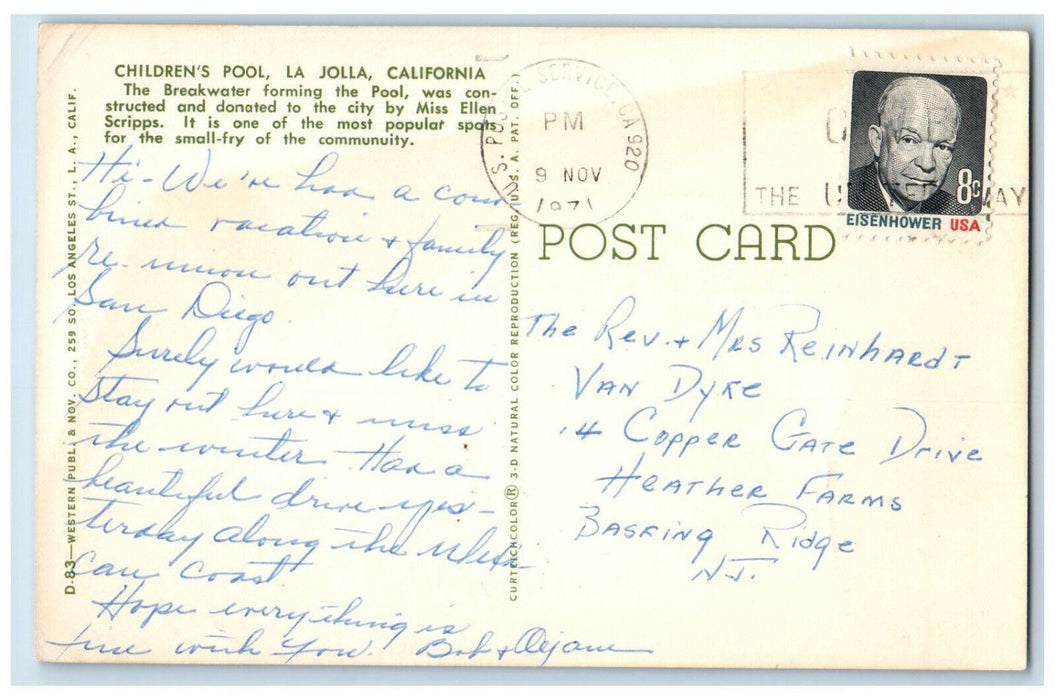 CHILDREN'S POOL, LA JOLLA, CALIFORNIA
The Breakwater forming the Pool, was con-
structed and donated to the city by Miss Ellen
Scripps. It is one of the most popular spots
for the small-fry of the community.
Hi - We've had a com
bined vacation & family
re-union out here in
San Diego.
Surely would like to
stay out here & miss
the winter. Had a
beautiful drive yes-
terday along the Mexi-
can coast.
Hope everything is
fine with you. Bob &
D-83—WESTERN PUBL. & NOV. CO., 259 SO. LOS ANGELES ST., L. A., CALIF.
CURTEICHCOLOR® 3-D NATURAL COLOR REPRODUCTION (REG. U.S.A. PAT. OFF.)
S. POSTAL SERVICE, CA 920
PM
9 NOV
1971
THE
WAY
8c
EISENHOWER USA
POST CARD
The Rev. + Mrs Reinhardt
Van Dyke
14 Copper Gate Drive
Heather Farms
Basking Ridge
N.J.